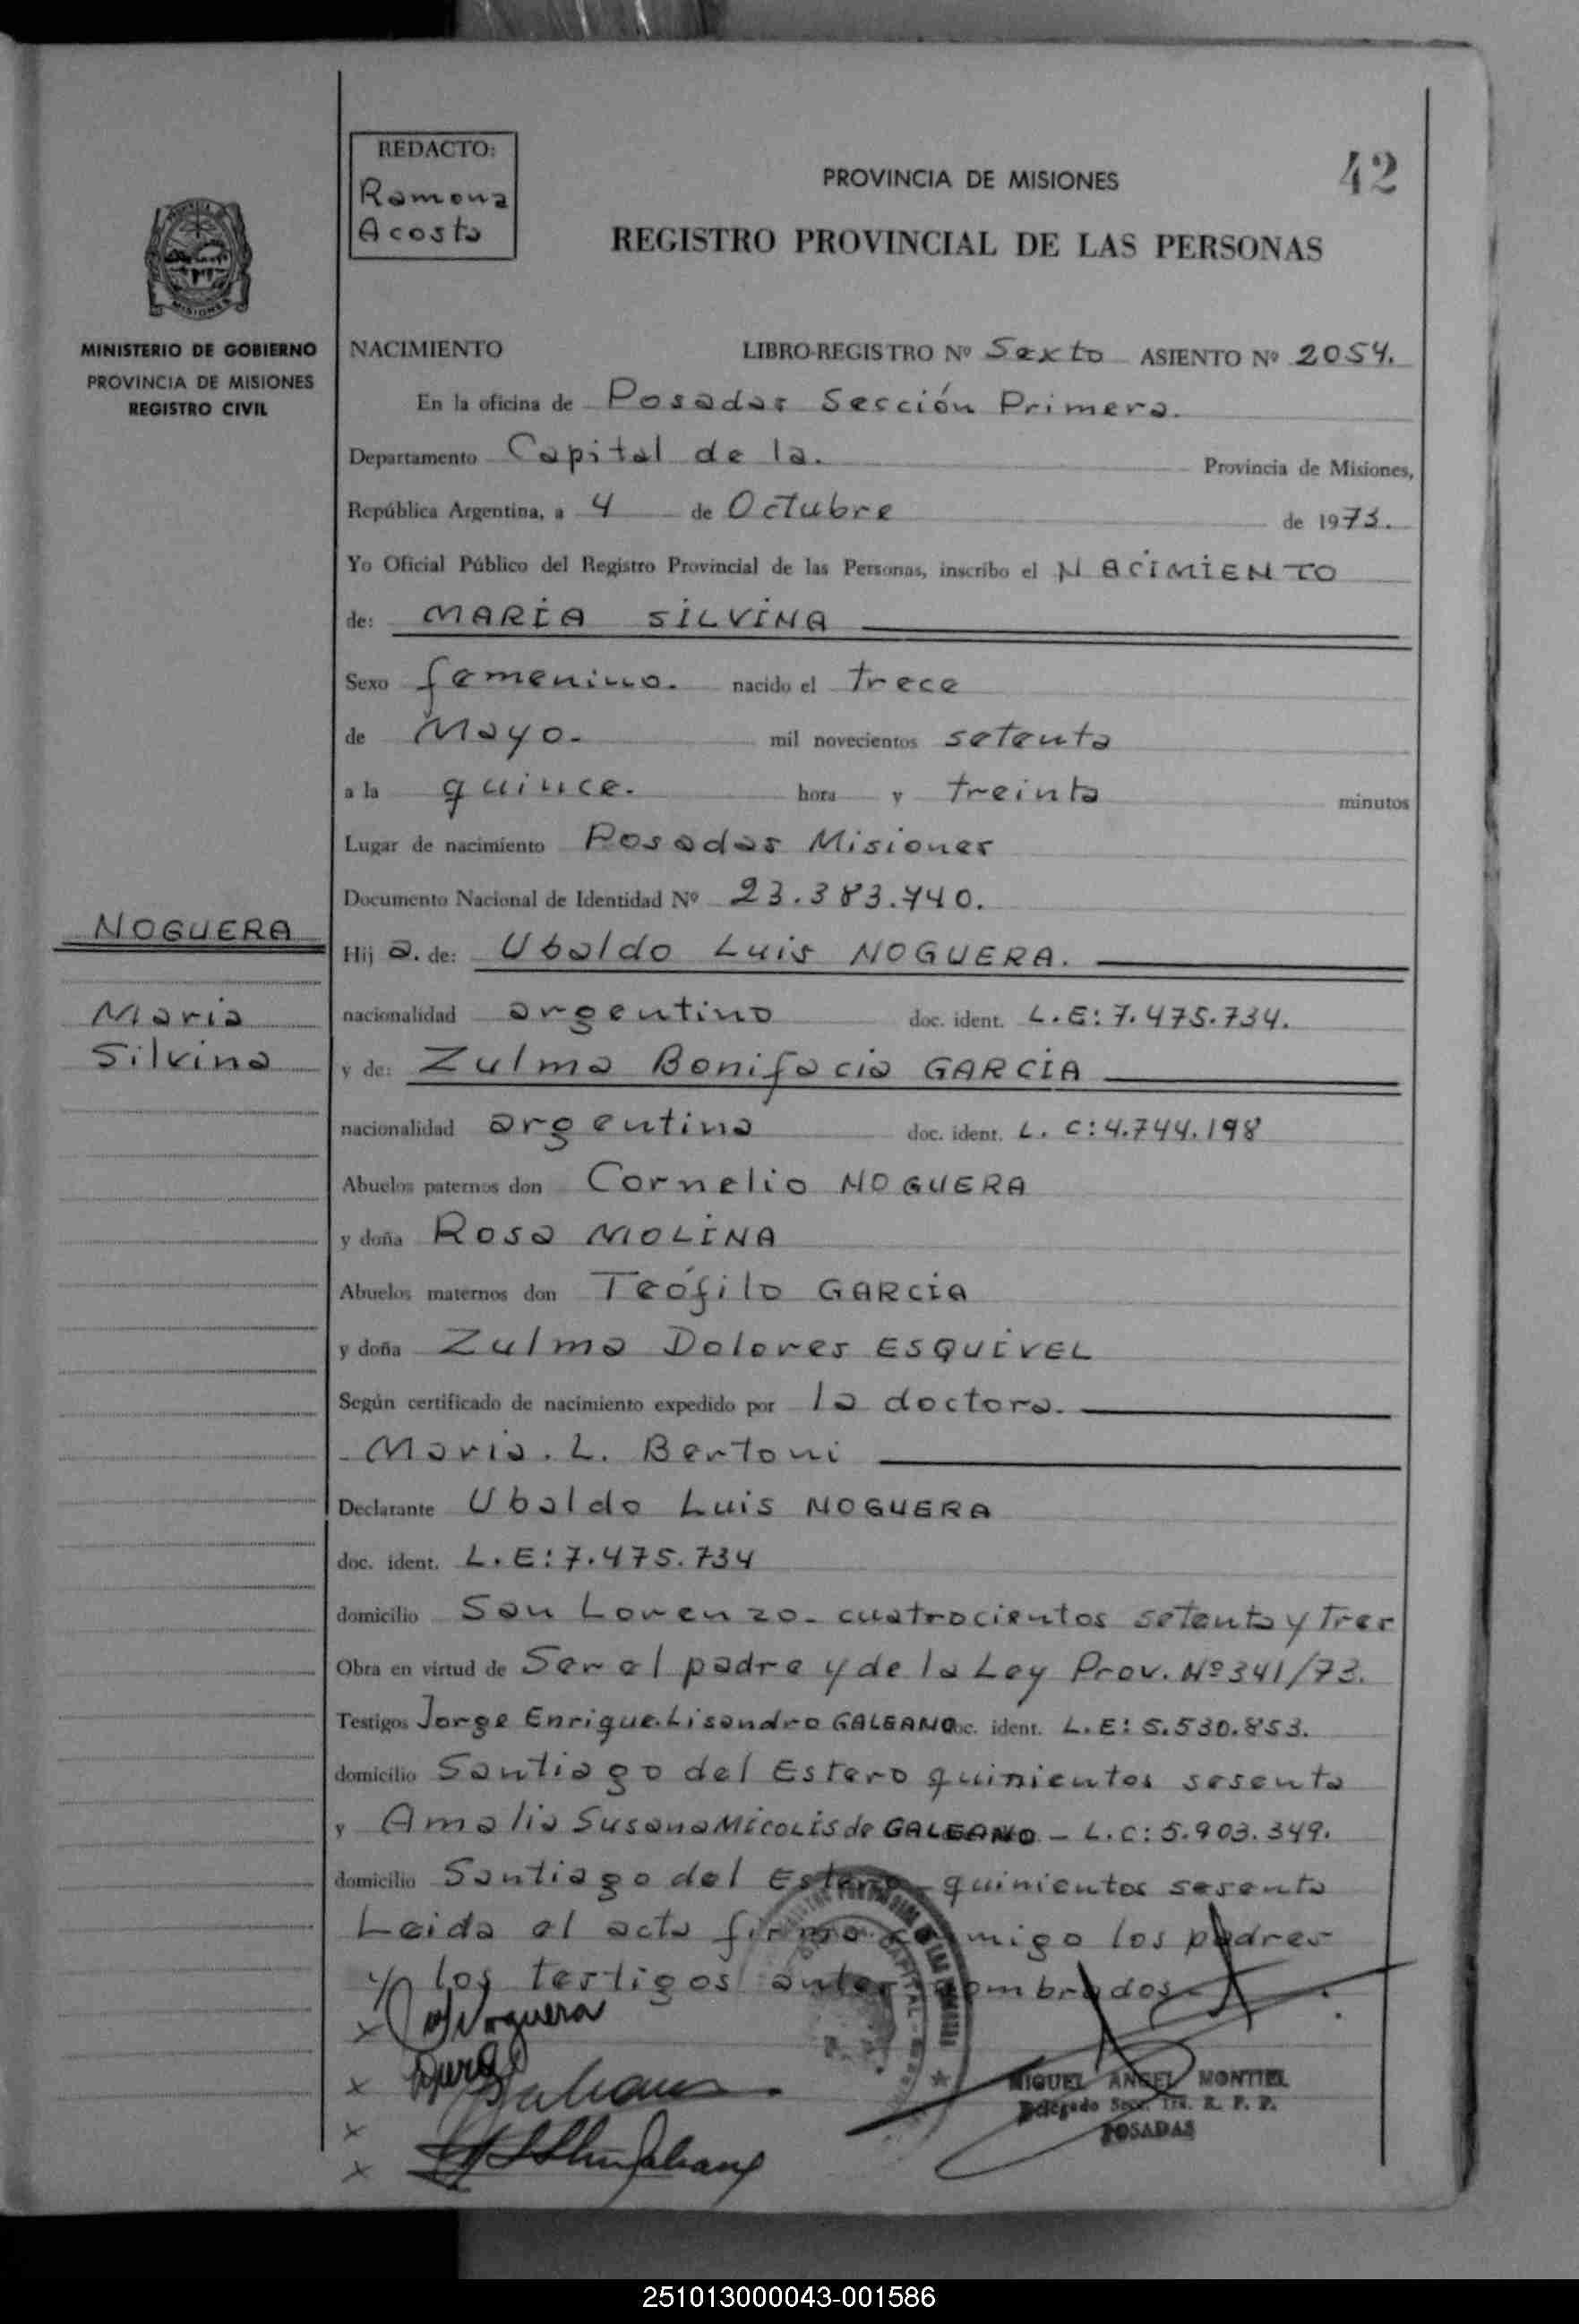 REDACTO:
Ramona
Acosta
PROVINCIA DE MISIONES
42
REGISTRO PROVINCIAL DE LAS PERSONAS
MINISTERIO DE GOBIERNO
PROVINCIA DE MISIONES
REGISTRO CIVIL
NACIMIENTO LIBRO-REGISTRO Nº Sexto ASIENTO Nº 2054.
En la oficina de Posadas Sección Primera.
Departamento Capital de la. Provincia de Misiones,
República Argentina, a 4 de Octubre de 1973.
Yo Oficial Público del Registro Provincial de las Personas, inscribo el NACIMIENTO
de: MARIA SILVINA
Sexo femenino. nacido el trece
de Mayo. mil novecientos setenta
a la quince. hora y treinta minutos
Lugar de nacimiento Posadas Misiones
Documento Nacional de Identidad Nº 23.383.440.
NOGUERA
Maria
Silvina
Hij a. de: Ubaldo Luis NOGUERA.
nacionalidad argentino doc. ident. L.E: 7.475.734.
y de: Zulma Bonifacia GARCIA
nacionalidad argentina doc. ident. L. C: 4.744.198
Abuelos paternos don Cornelio NOGUERA
y doña Rosa MOLINA
Abuelos maternos don Teófilo GARCIA
y doña Zulma Dolores ESQUIVEL
Según certificado de nacimiento expedido por la doctora.
Maria. L. Bertoni
Declarante Ubaldo Luis NOGUERA
doc. ident. L.E: 7.475.734
domicilio San Lorenzo- cuatrocientos setenta y tres
Obra en virtud de Ser el padre y de la Ley Prov. Nº 341/73.
Testigos Jorge Enrique Lisandro GALEANO doc. ident. L.E: 5.530.853.
domicilio Santiago del Estero quinientos sesenta
y Amalia Susana MICOLIS de GALEANO - L.C: 5.903.349.
domicilio Santiago del Estero quinientos sesenta
Leida el acta firman conmigo los padres
y los testigos antes nombrados-
x Noguera
x
x
x
MIGUEL ANGEL MONTIEL
Delegado Secc. 1ra. R. P. P.
POSADAS
251013000043-001586